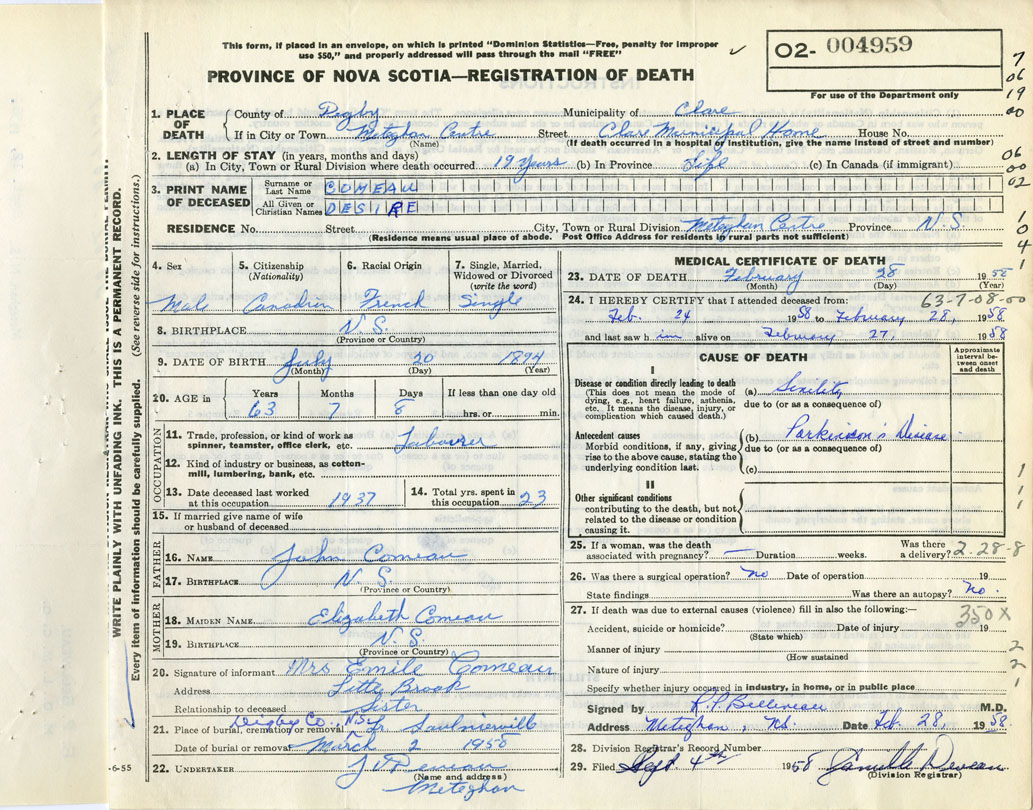 This form, if placed in an envelope, on which is printed "Dominion Statistics—Free, penalty for improper
use $50," and properly addressed will pass through the mail "FREE"
O2- 004959
For use of the Department only
PROVINCE OF NOVA SCOTIA—REGISTRATION OF DEATH
1. PLACE OF DEATH
County of Digby Municipality of Clare
If in City or Town Meteghan Centre Street Clare Municipal Home House No.
(Name) (If death occurred in a hospital or institution, give the name instead of street and number)
2. LENGTH OF STAY (in years, months and days)
(a) In City, Town or Rural Division where death occurred 19 years (b) In Province Life (c) In Canada (if immigrant)
3. PRINT NAME OF DECEASED
Surname or Last Name COMEAU
All Given or Christian Names DESIRE
RESIDENCE No. Street City, Town or Rural Division Meteghan Centre Province N.S.
(Residence means usual place of abode. Post Office Address for residents in rural parts not sufficient)
4. Sex Male
5. Citizenship (Nationality) Canadian
6. Racial Origin French
7. Single, Married, Widowed or Divorced (write the word) Single
8. BIRTHPLACE N.S.
(Province or Country)
9. DATE OF BIRTH July 20 1894
(Month) (Day) (Year)
10. AGE in Years Months Days If less than one day old
63 7 8 hrs. or min.
OCCUPATION
11. Trade, profession, or kind of work as spinner, teamster, office clerk, etc. Labourer
12. Kind of industry or business, as cotton-mill, lumbering, bank, etc.
13. Date deceased last worked at this occupation 1937
14. Total yrs. spent in this occupation 23
15. If married give name of wife or husband of deceased
FATHER
16. NAME John Comeau
17. BIRTHPLACE N.S.
(Province or Country)
MOTHER
18. MAIDEN NAME Elizabeth Comeau
19. BIRTHPLACE N.S.
(Province or Country)
20. Signature of informant Mrs Emile Comeau
Address Little Brook
Relationship to deceased Sister
21. Place of burial, cremation or removal Digby Co., N.S. Saulnierville
Date of burial or removal March 2 1958
22. UNDERTAKER
(Name and address)
Meteghan
MEDICAL CERTIFICATE OF DEATH
23. DATE OF DEATH February 28 1958
(Month) (Day) (Year)
24. I HEREBY CERTIFY that I attended deceased from: 63-7-08-00
Feb. 24 1958 to February 28, 1958
and last saw him alive on February 27, 1958
CAUSE OF DEATH
Approximate interval between onset and death
I
Disease or condition directly leading to death
(This does not mean the mode of dying, e.g., heart failure, asthenia, etc. It means the disease, injury, or complication which caused death.)
(a) Senility
due to (or as a consequence of)
Antecedent causes
Morbid conditions, if any, giving rise to the above cause, stating the underlying condition last.
(b) Parkinson's Disease
due to (or as a consequence of)
(c)
II
Other significant conditions
contributing to the death, but not related to the disease or condition causing it.
25. If a woman, was the death associated with pregnancy? — Duration weeks. Was there a delivery? 2-28-8
26. Was there a surgical operation? No Date of operation 19
State findings Was there an autopsy? No.
27. If death was due to external causes (violence) fill in also the following:— 350X
Accident, suicide or homicide? Date of injury 19
(State which)
Manner of injury
(How sustained)
Nature of injury
Specify whether injury occurred in industry, in home, or in public place
Signed by R.P. Belliveau M.D.
Address Meteghan, N.S. Date Feb. 28, 1958
28. Division Registrar's Record Number
29. Filed Sept. 4th 1958 Camille Deveau
(Division Registrar)
WRITE PLAINLY WITH UNFADING INK. THIS IS A PERMANENT RECORD.
Every item of information should be carefully supplied. (See reverse side for instructions.)
-6-55
7
06
19
00
06
00
02
1
0
4
1
1
1
1
2
2
1